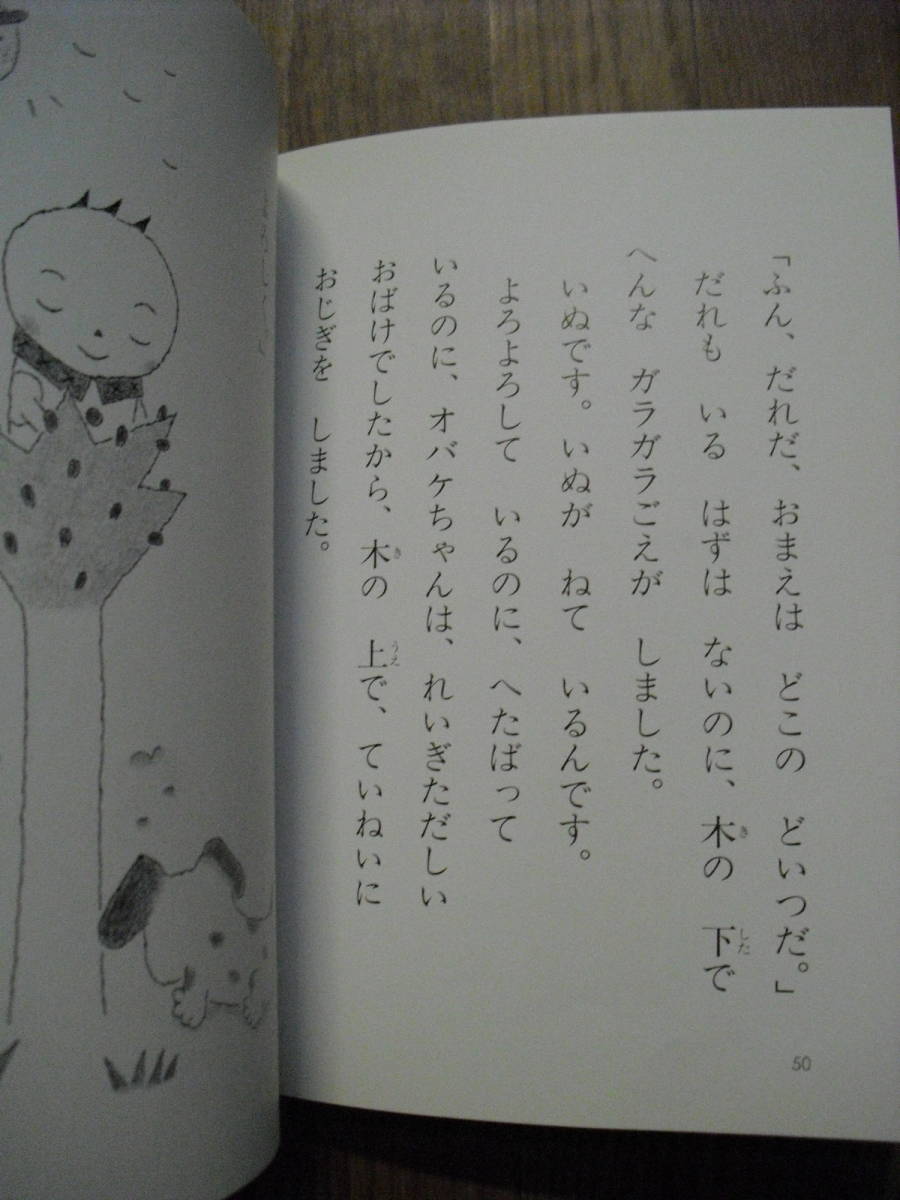 「ふん、だれだ、おまえは どこの どいつだ。」
だれも いる はずは ないのに、木の 下で
へんな ガラガラごえが しました。
いぬです。いぬが ねて いるんです。
よろよろして いるのに、へたばって
いるのに、オバケちゃんは、れいぎただしい
おばけでしたから、木の 上で、ていねいに
おじぎを しました。
50